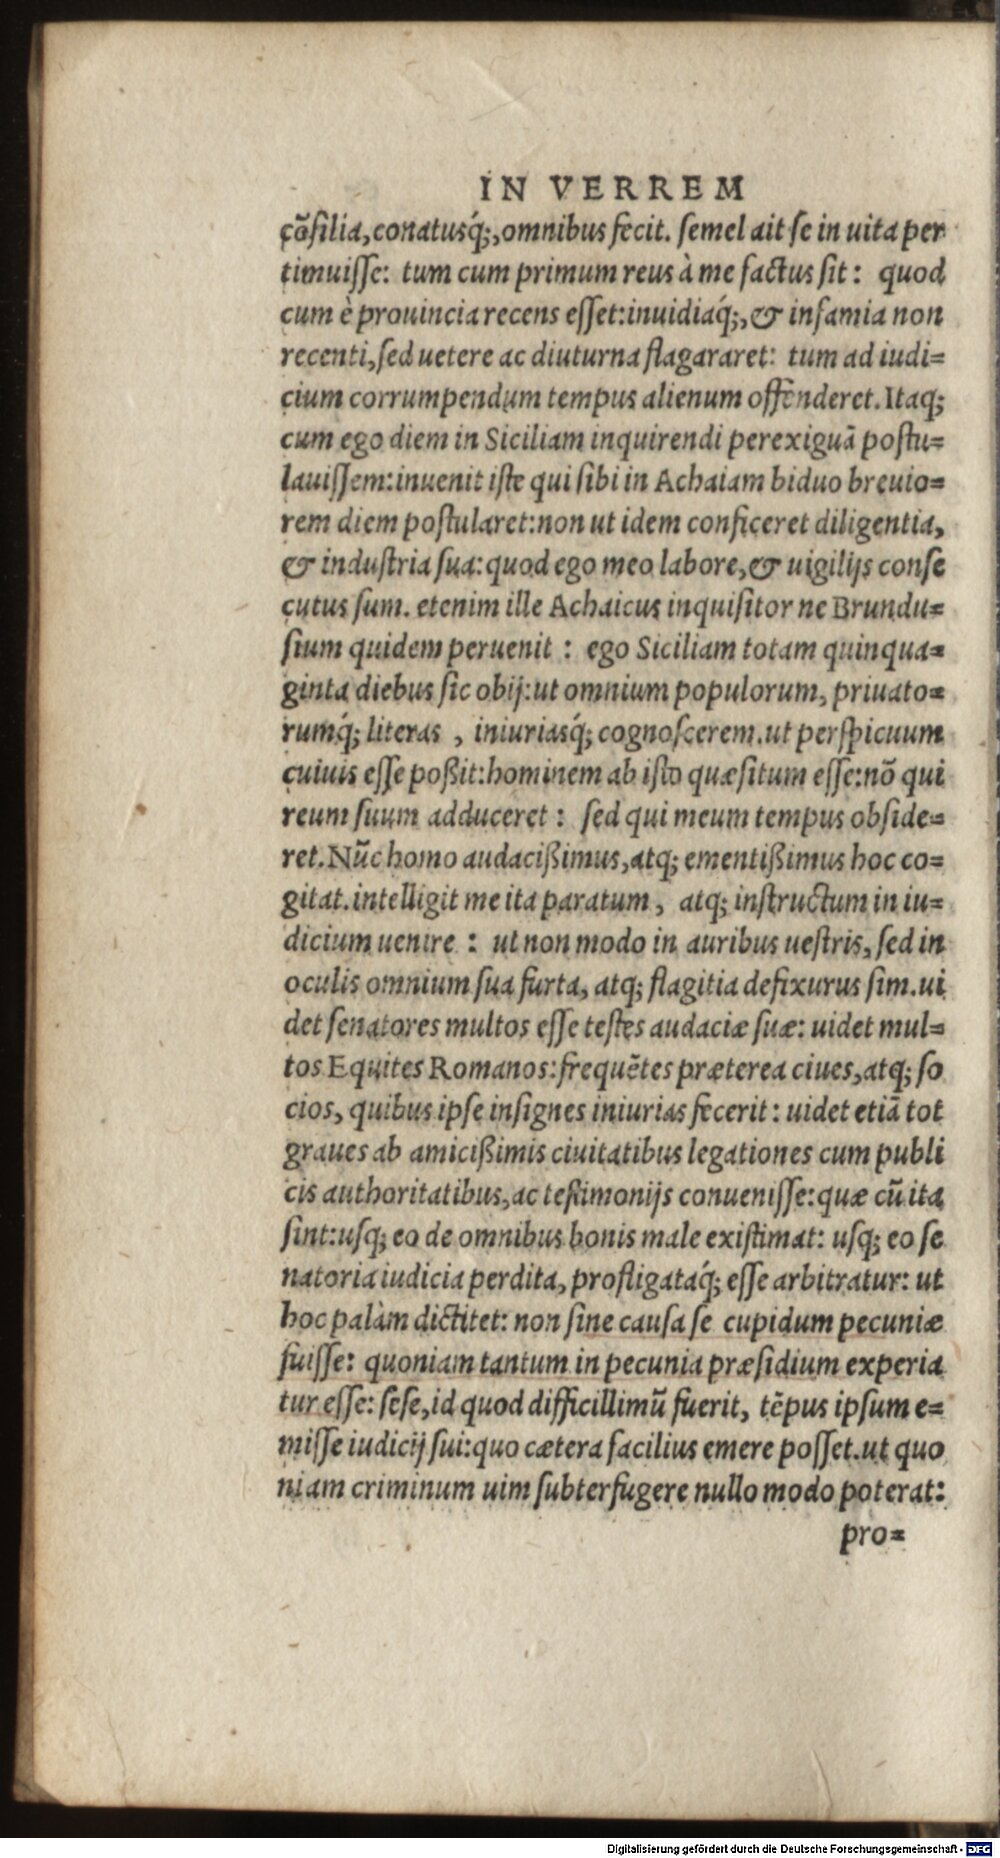 IN VERREM
cõsilia, conatusq́;, omnibus fecit. semel ait se in uita per
timuisse: tum cum primum reus à me factus sit: quod
cum è prouincia recens esset: inuidiaq́;, & infamia non
recenti, sed uetere ac diuturna flagararet: tum ad iudi=
cium corrumpendum tempus alienum offenderet. Itaq;
cum ego diem in Siciliam inquirendi perexiguã postu=
lauissem: inuenit iste qui sibi in Achaiam biduo breuio=
rem diem postularet: non ut idem conficeret diligentia,
& industria sua: quod ego meo labore, & uigilijs conse
cutus sum. etenim ille Achaicus inquisitor ne Brundu=
sium quidem peruenit: ego Siciliam totam quinqua=
ginta diebus sic obij: ut omnium populorum, priuato=
rumq́; literas, iniuriasq́; cognoscerem. ut perspicuum
cuiuis esse poßit: hominem ab isto quæsitum esse: nõ qui
reum suum adduceret: sed qui meum tempus obside=
ret. Nũc homo audacißimus, atq; ementißimus hoc co=
gitat. intelligit me ita paratum, atq; instructum in iu=
dicium uenire: ut non modo in auribus uestris, sed in
oculis omnium sua furta, atq; flagitia defixurus sim. ui
det senatores multos esse testes audaciæ suæ: uidet mul=
tos Equites Romanos: frequẽtes præterea ciues, atq; so
cios, quibus ipse insignes iniurias fecerit: uidet etiã tot
graues ab amicißimis ciuitatibus legationes cum publi
cis authoritatibus, ac testimonijs conuenisse: quæ cũ ita
sint: usq; eo de omnibus bonis male existimat: usq; eo se
natoria iudicia perdita, profligataq́; esse arbitratur: ut
hoc palàm dictitet: non sine causa se cupidum pecuniæ
fuisse: quoniam tantum in pecunia præsidium experia
tur esse: sese, id quod difficillimũ fuerit, tẽpus ipsum e=
misse iudicij sui: quo cætera facilius emere posset. ut quo
niam criminum uim subterfugere nullo modo poterat:
pro=
Digitalisierung gefördert durch die Deutsche Forschungsgemeinschaft - DFG